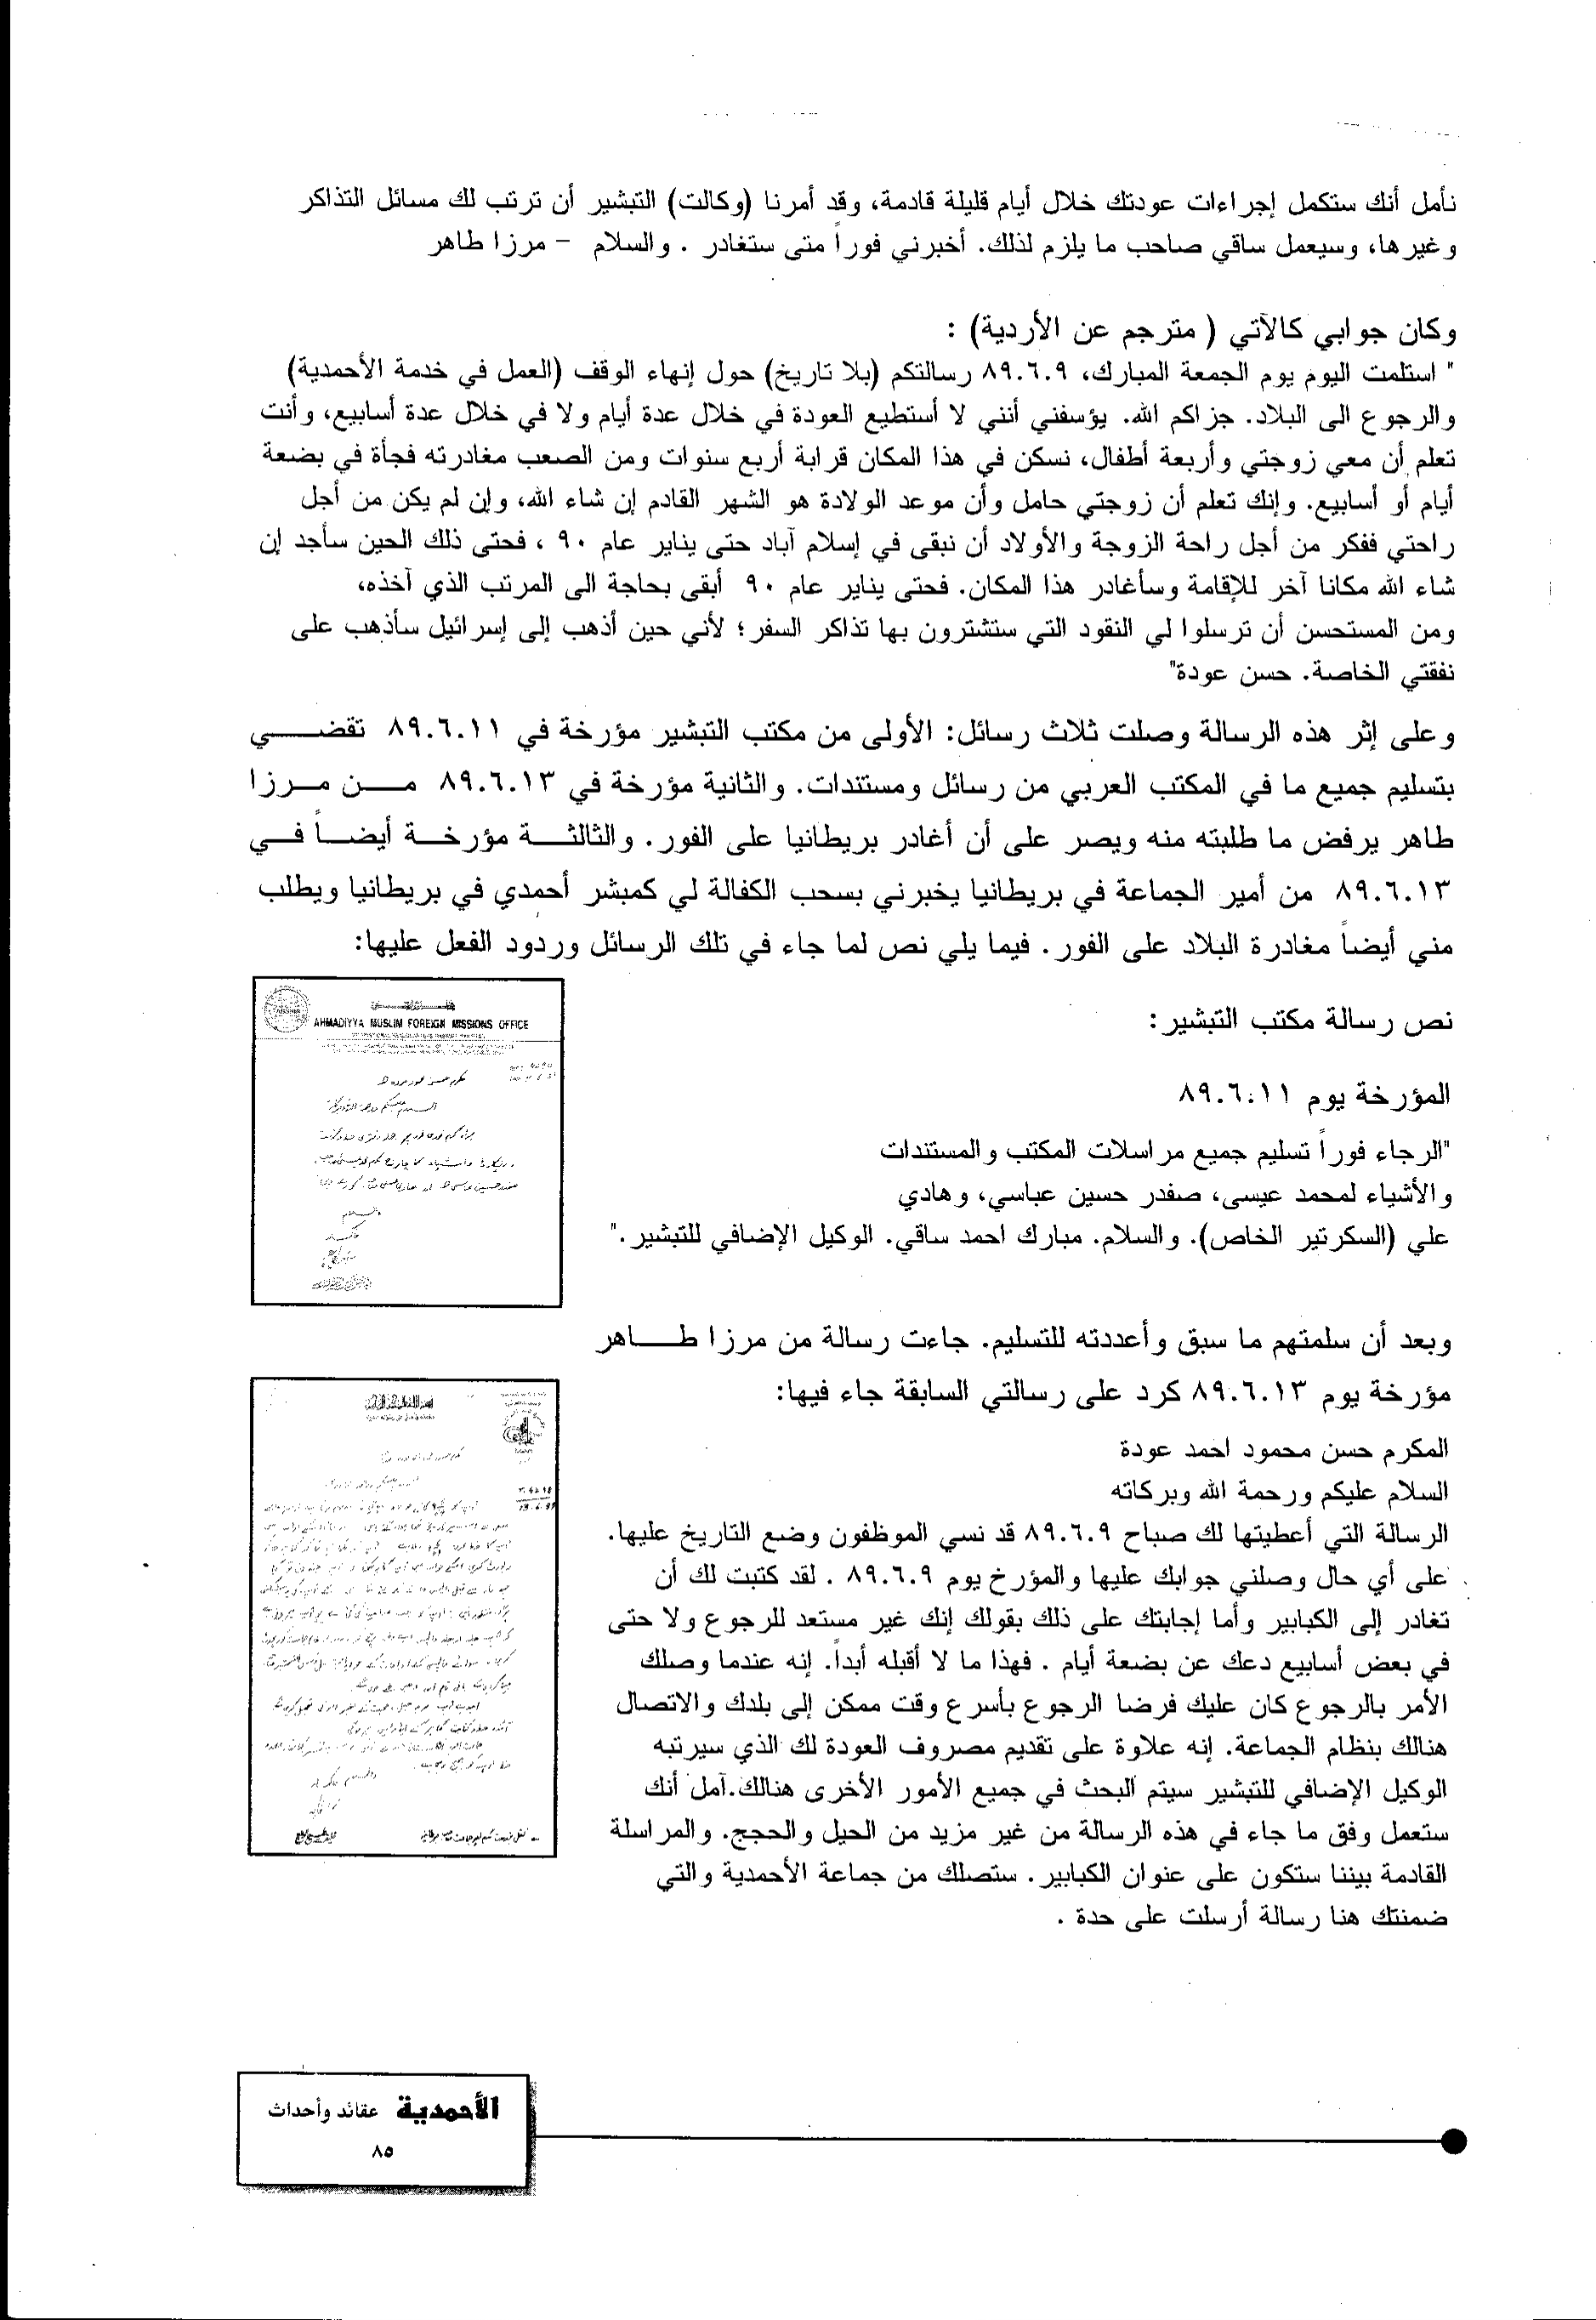 نأمل أنك ستكمل إجراءات عودتك خلال أيام قليلة قادمة، وقد أمرنا (وكالت) التبشير أن ترتب لك مسائل التذاكر
وغيرها، وسيعمل ساقي صاحب ما يلزم لذلك. أخبرني فوراً متى ستغادر . والسلام – مرزا طاهر
وكان جوابي كالآتي ( مترجم عن الأردية) :
" استلمت اليوم يوم الجمعة المبارك، ٨٩.٦.٩ رسالتكم (بلا تاريخ) حول إنهاء الوقف (العمل في خدمة الأحمدية)
والرجوع الى البلاد. جزاكم الله. يؤسفني أنني لا أستطيع العودة في خلال عدة أيام ولا في خلال عدة أسابيع، وأنت
تعلم أن معي زوجتي وأربعة أطفال، نسكن في هذا المكان قرابة أربع سنوات ومن الصعب مغادرته فجأة في بضعة
أيام أو أسابيع. وإنك تعلم أن زوجتي حامل وأن موعد الولادة هو الشهر القادم إن شاء الله، وإن لم يكن من أجل
راحتي ففكر من أجل راحة الزوجة والأولاد أن نبقى في إسلام آباد حتى يناير عام ٩٠ ، فحتى ذلك الحين سأجد إن
شاء الله مكانا آخر للإقامة وسأغادر هذا المكان. فحتى يناير عام ٩٠ أبقى بحاجة الى المرتب الذي آخذه،
ومن المستحسن أن ترسلوا لي النقود التي ستشترون بها تذاكر السفر؛ لأني حين أذهب إلى إسرائيل سأذهب على
نفقتي الخاصة. حسن عودة"
وعلى إثر هذه الرسالة وصلت ثلاث رسائل: الأولى من مكتب التبشير مؤرخة في ٨٩.٦.١١ تقضـــــي
بتسليم جميع ما في المكتب العربي من رسائل ومستندات. والثانية مؤرخة في ٨٩.٦.١٣ مــــن مــرزا
طاهر يرفض ما طلبته منه ويصر على أن أغادر بريطانيا على الفور. والثالثــــة مؤرخــة أيضــاً فــي
٨٩.٦.١٣ من أمير الجماعة في بريطانيا يخبرني بسحب الكفالة لي كمبشر أحمدي في بريطانيا ويطلب
مني أيضاً مغادرة البلاد على الفور. فيما يلي نص لما جاء في تلك الرسائل وردود الفعل عليها:
AHMADIYYA MUSLIM FOREIGN MISSIONS OFFICE
نص رسالة مكتب التبشير:
المؤرخة يوم ٨٩.٦.١١
"الرجاء فوراً تسليم جميع مراسلات المكتب والمستندات
والأشياء لمحمد عيسى، صفدر حسين عباسي، وهادي
علي (السكرتير الخاص). والسلام. مبارك احمد ساقي. الوكيل الإضافي للتبشير."
وبعد أن سلمتهم ما سبق وأعددته للتسليم. جاءت رسالة من مرزا طـــــاهر
مؤرخة يوم ٨٩.٦.١٣ كرد على رسالتي السابقة جاء فيها:
المكرم حسن محمود احمد عودة
السلام عليكم ورحمة الله وبركاته
الرسالة التي أعطيتها لك صباح ٨٩.٦.٩ قد نسي الموظفون وضع التاريخ عليها.
على أي حال وصلني جوابك عليها والمؤرخ يوم ٨٩.٦.٩ . لقد كتبت لك أن
تغادر إلى الكبابير وأما إجابتك على ذلك بقولك إنك غير مستعد للرجوع ولا حتى
في بعض أسابيع دعك عن بضعة أيام . فهذا ما لا أقبله أبداً. إنه عندما وصلك
الأمر بالرجوع كان عليك فرضا الرجوع بأسرع وقت ممكن إلى بلدك والاتصال
هنالك بنظام الجماعة. إنه علاوة على تقديم مصروف العودة لك الذي سيرتبه
الوكيل الإضافي للتبشير سيتم البحث في جميع الأمور الأخرى هنالك.آمل أنك
ستعمل وفق ما جاء في هذه الرسالة من غير مزيد من الحيل والحجج. والمراسلة
القادمة بيننا ستكون على عنوان الكبابير. ستصلك من جماعة الأحمدية والتي
ضمنتك هنا رسالة أرسلت على حدة .
الأحمدية عقائد وأحداث
٨٥